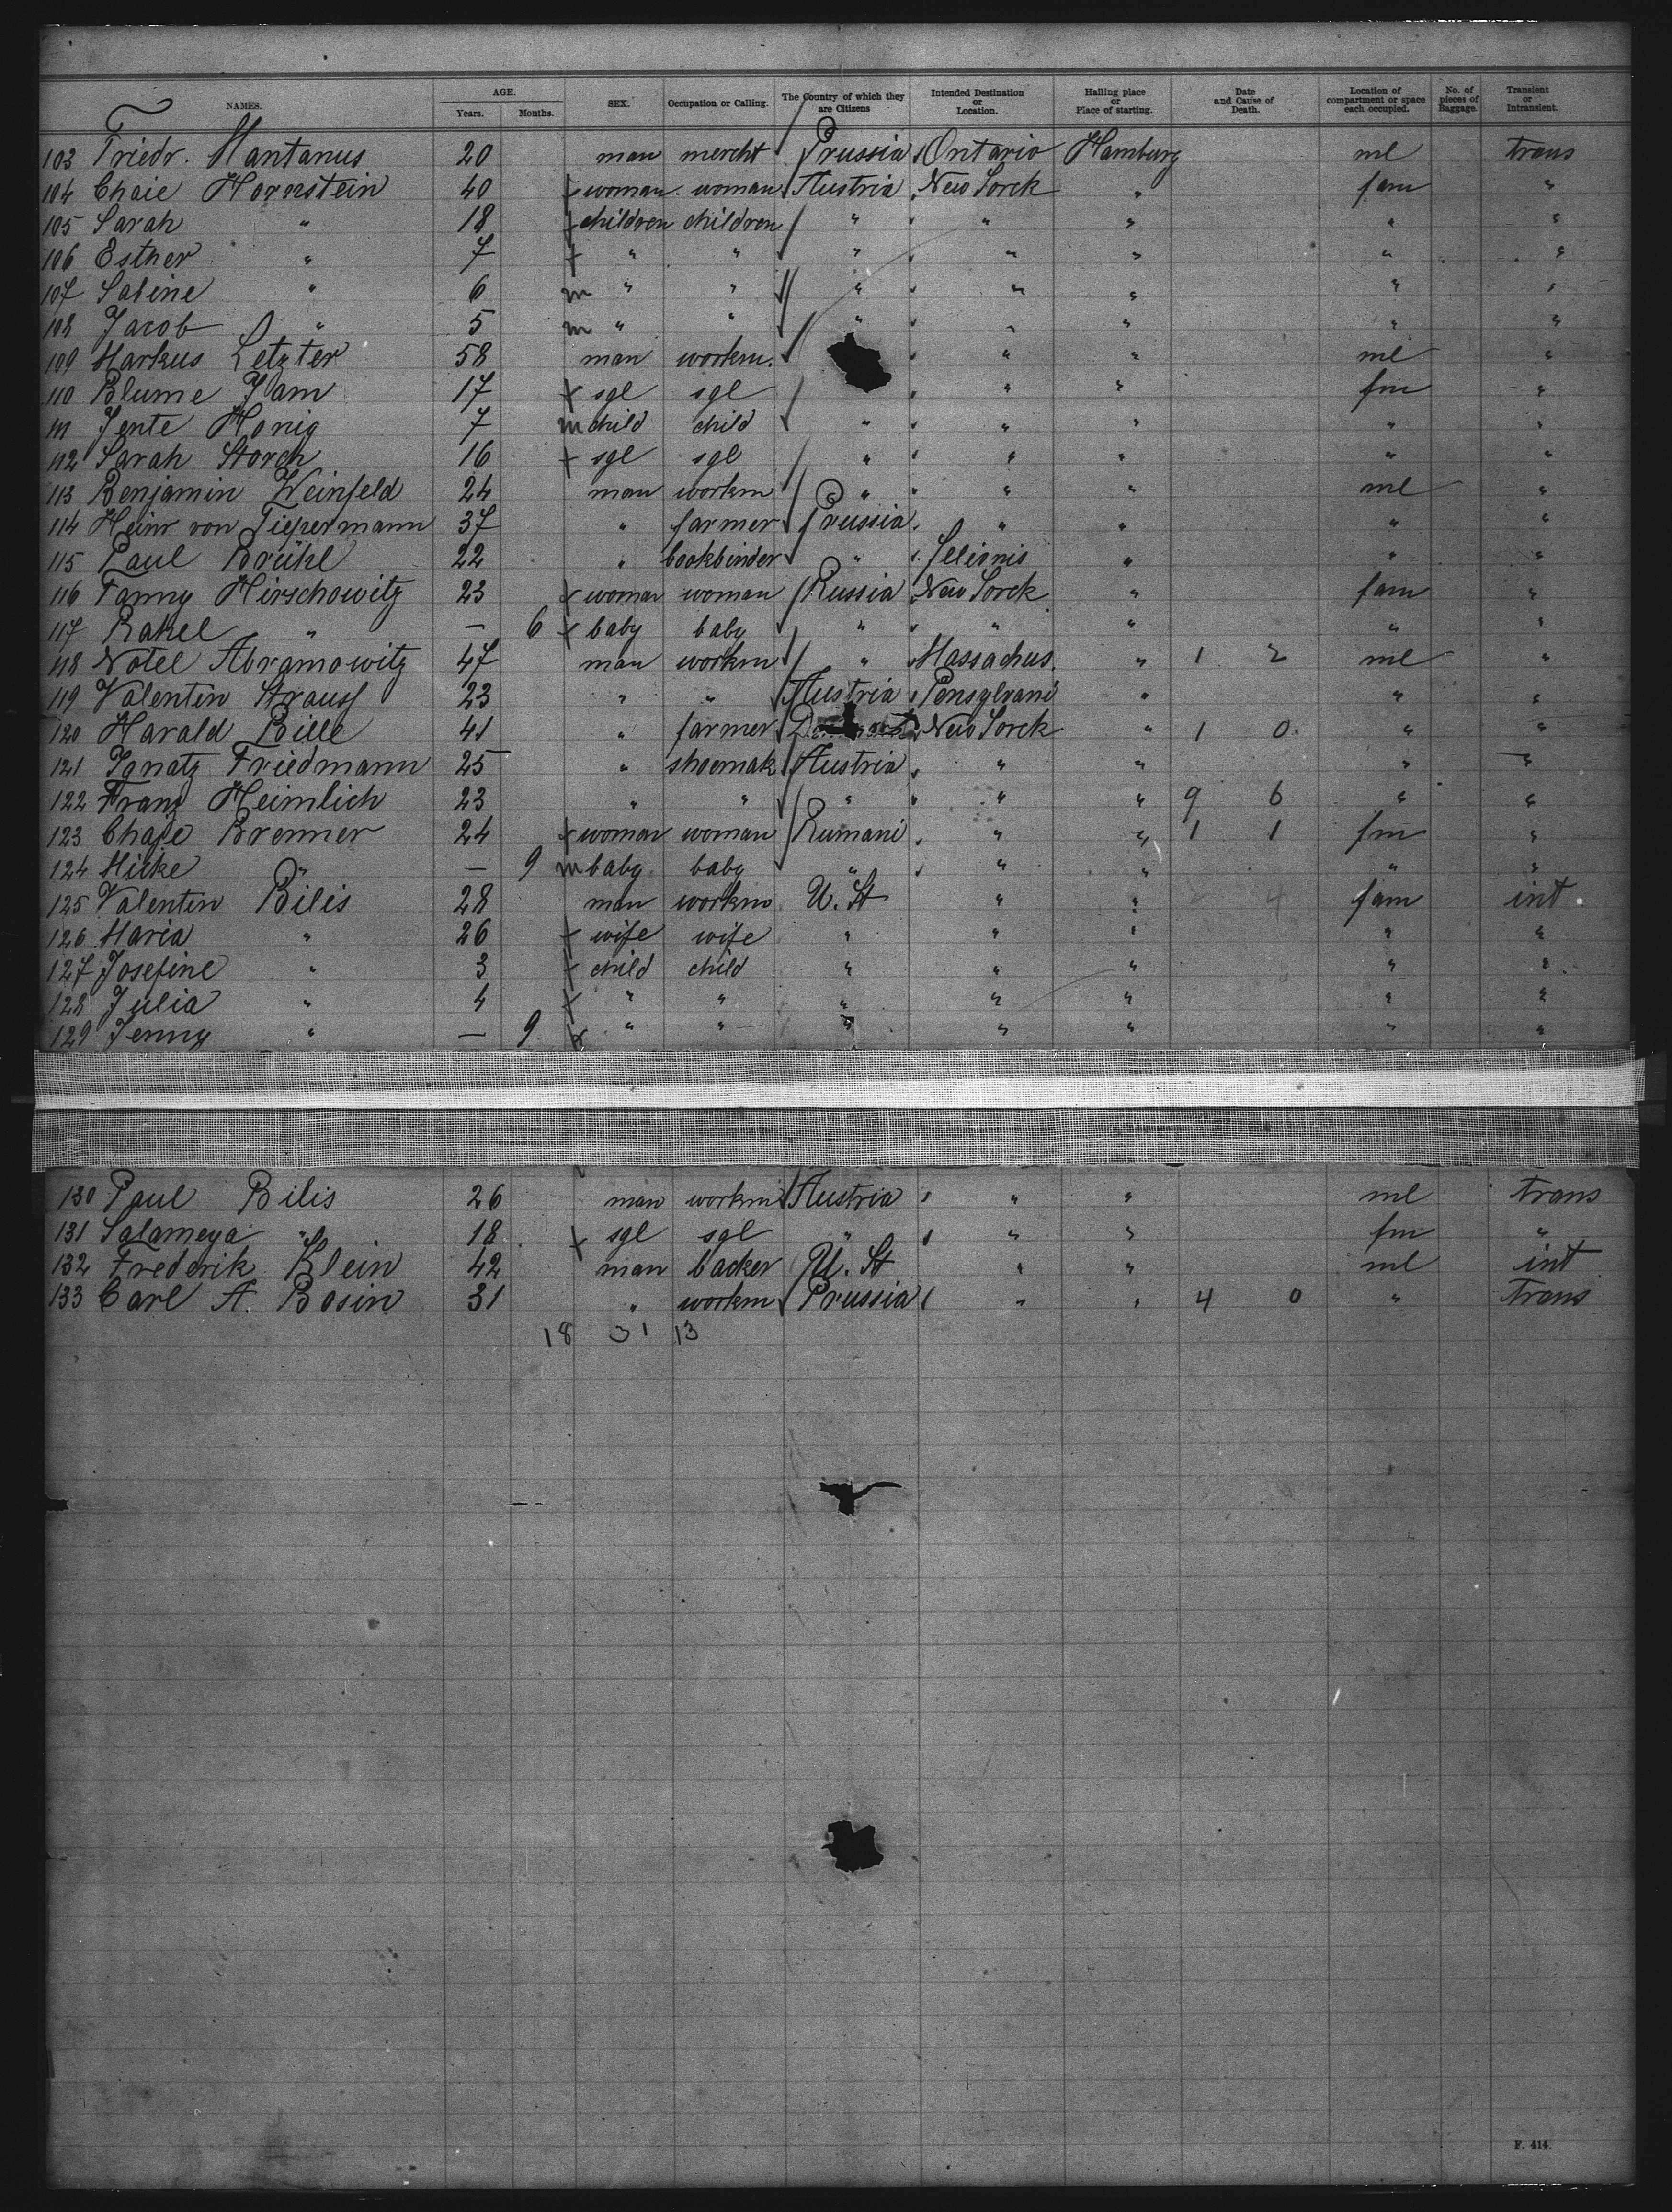 NAMES. AGE. SEX. Occupation or Calling. The Country of which they are Citizens Intended Destination or Location. Hailing place or Place of starting. Date and Cause of Death. Location of compartment or space each occupied. No. of pieces of Baggage. Transient or Intransient.
Years. Months.
103 Friedr. Mantanus 20 man mercht Prussia Ontario Hamburg ml trans
104 Chaie Hornstein 40 f woman woman Austria New Yorck " fam "
105 Sarah " 18 f children children " " " " "
106 Esther " 7 f " " " " " " "
107 Sabine " 6 m " " " " " " "
108 Jacob " 5 m " " " " " " "
109 Markus Letzter 58 man workm. " " ml "
110 Blume Flam 17 f sgl sgl " " fm "
111 Jente Honig 7 m child child " " " " "
112 Sarah Storch 16 f sgl sgl " " " " "
113 Benjamin Weinfeld 24 man workm " " " ml "
114 Heinr von Tiepermann 37 " farmer Prussia " " " "
115 Paul Brühl 22 " bookbinder " " " "
116 Fanny Hirschowitz 23 f woman woman Russia New Yorck " fam "
117 Rahel " — 6 f baby baby " " " " "
118 Notel Abramowitz 47 man workm " Massachus. " 1 2 ml "
119 Valentin Strauss 23 " " Austria Pensylvani " " "
120 Harald Bille 41 " farmer New Yorck " 1 0 " "
121 Ignatz Friedmann 25 " shoemak Austria " " " "
122 Franz Heimlich 23 " " " " " 9 6 " "
123 Chaje Brenner 24 f woman woman Rumani " " 1 1 fm "
124 Micke " — 9 m baby baby " " " " "
125 Valentin Bilis 28 man workm U. St " " fam int.
126 Maria " 26 f wife wife " " " " "
127 Josefine " 3 f child child " " " " "
128 Julia " 4 f " " " " " " "
129 Jenny " — 9 f " " " " " " "
130 Paul Bilis 26 man workm Austria " " ml trans
131 Salomeya " 18 f sgl sgl " " " fm "
132 Frederik Klein 42 man backer U. St " " ml int
133 Carl A. Bosin 31 " workm Prussia " " 4 0 " trans
18 31 13
F. 414.